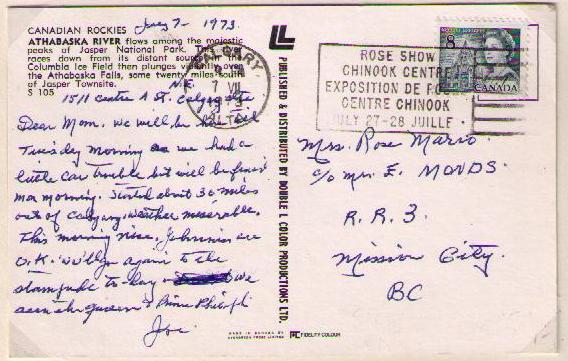 CANADIAN ROCKIES July 7 - 1973.
ATHABASKA RIVER flows among the majestic
peaks of Jasper National Park. This
races down from its distant source in the
Columbia Ice Field then plunges violently over
the Athabaska Falls, some twenty miles south
of Jasper Townsite.
S 105
N.E.
1511 Centre A St. Calgary
Dear Mom. we will be here till
Tuesday morning as we had a
little car trouble but will be fixed
mon morning. Tented about 30 miles
out of Calgary. weather miserable.
This morning nice. Johnnies are
O.K. We'll go again to the
stampede to-day we
seen the queen & Prince Philip
Joe
LL
PUBLISHED & DISTRIBUTED BY DOUBLE L COLOR PRODUCTIONS LTD.
MADE IN CANADA BY
EVERGREEN PRESS LIMITED
FIDELITY COLOUR
CALGARY
7 VII
ALTA
ROSE SHOW
CHINOOK CENTRE
EXPOSITION DE
CENTRE CHINOOK
JULY 27-28 JUILLET
8
CANADA
Mrs. Rose Mario.
c/o Mrs. E. MOVDS.
R.R. 3.
Mission City.
BC